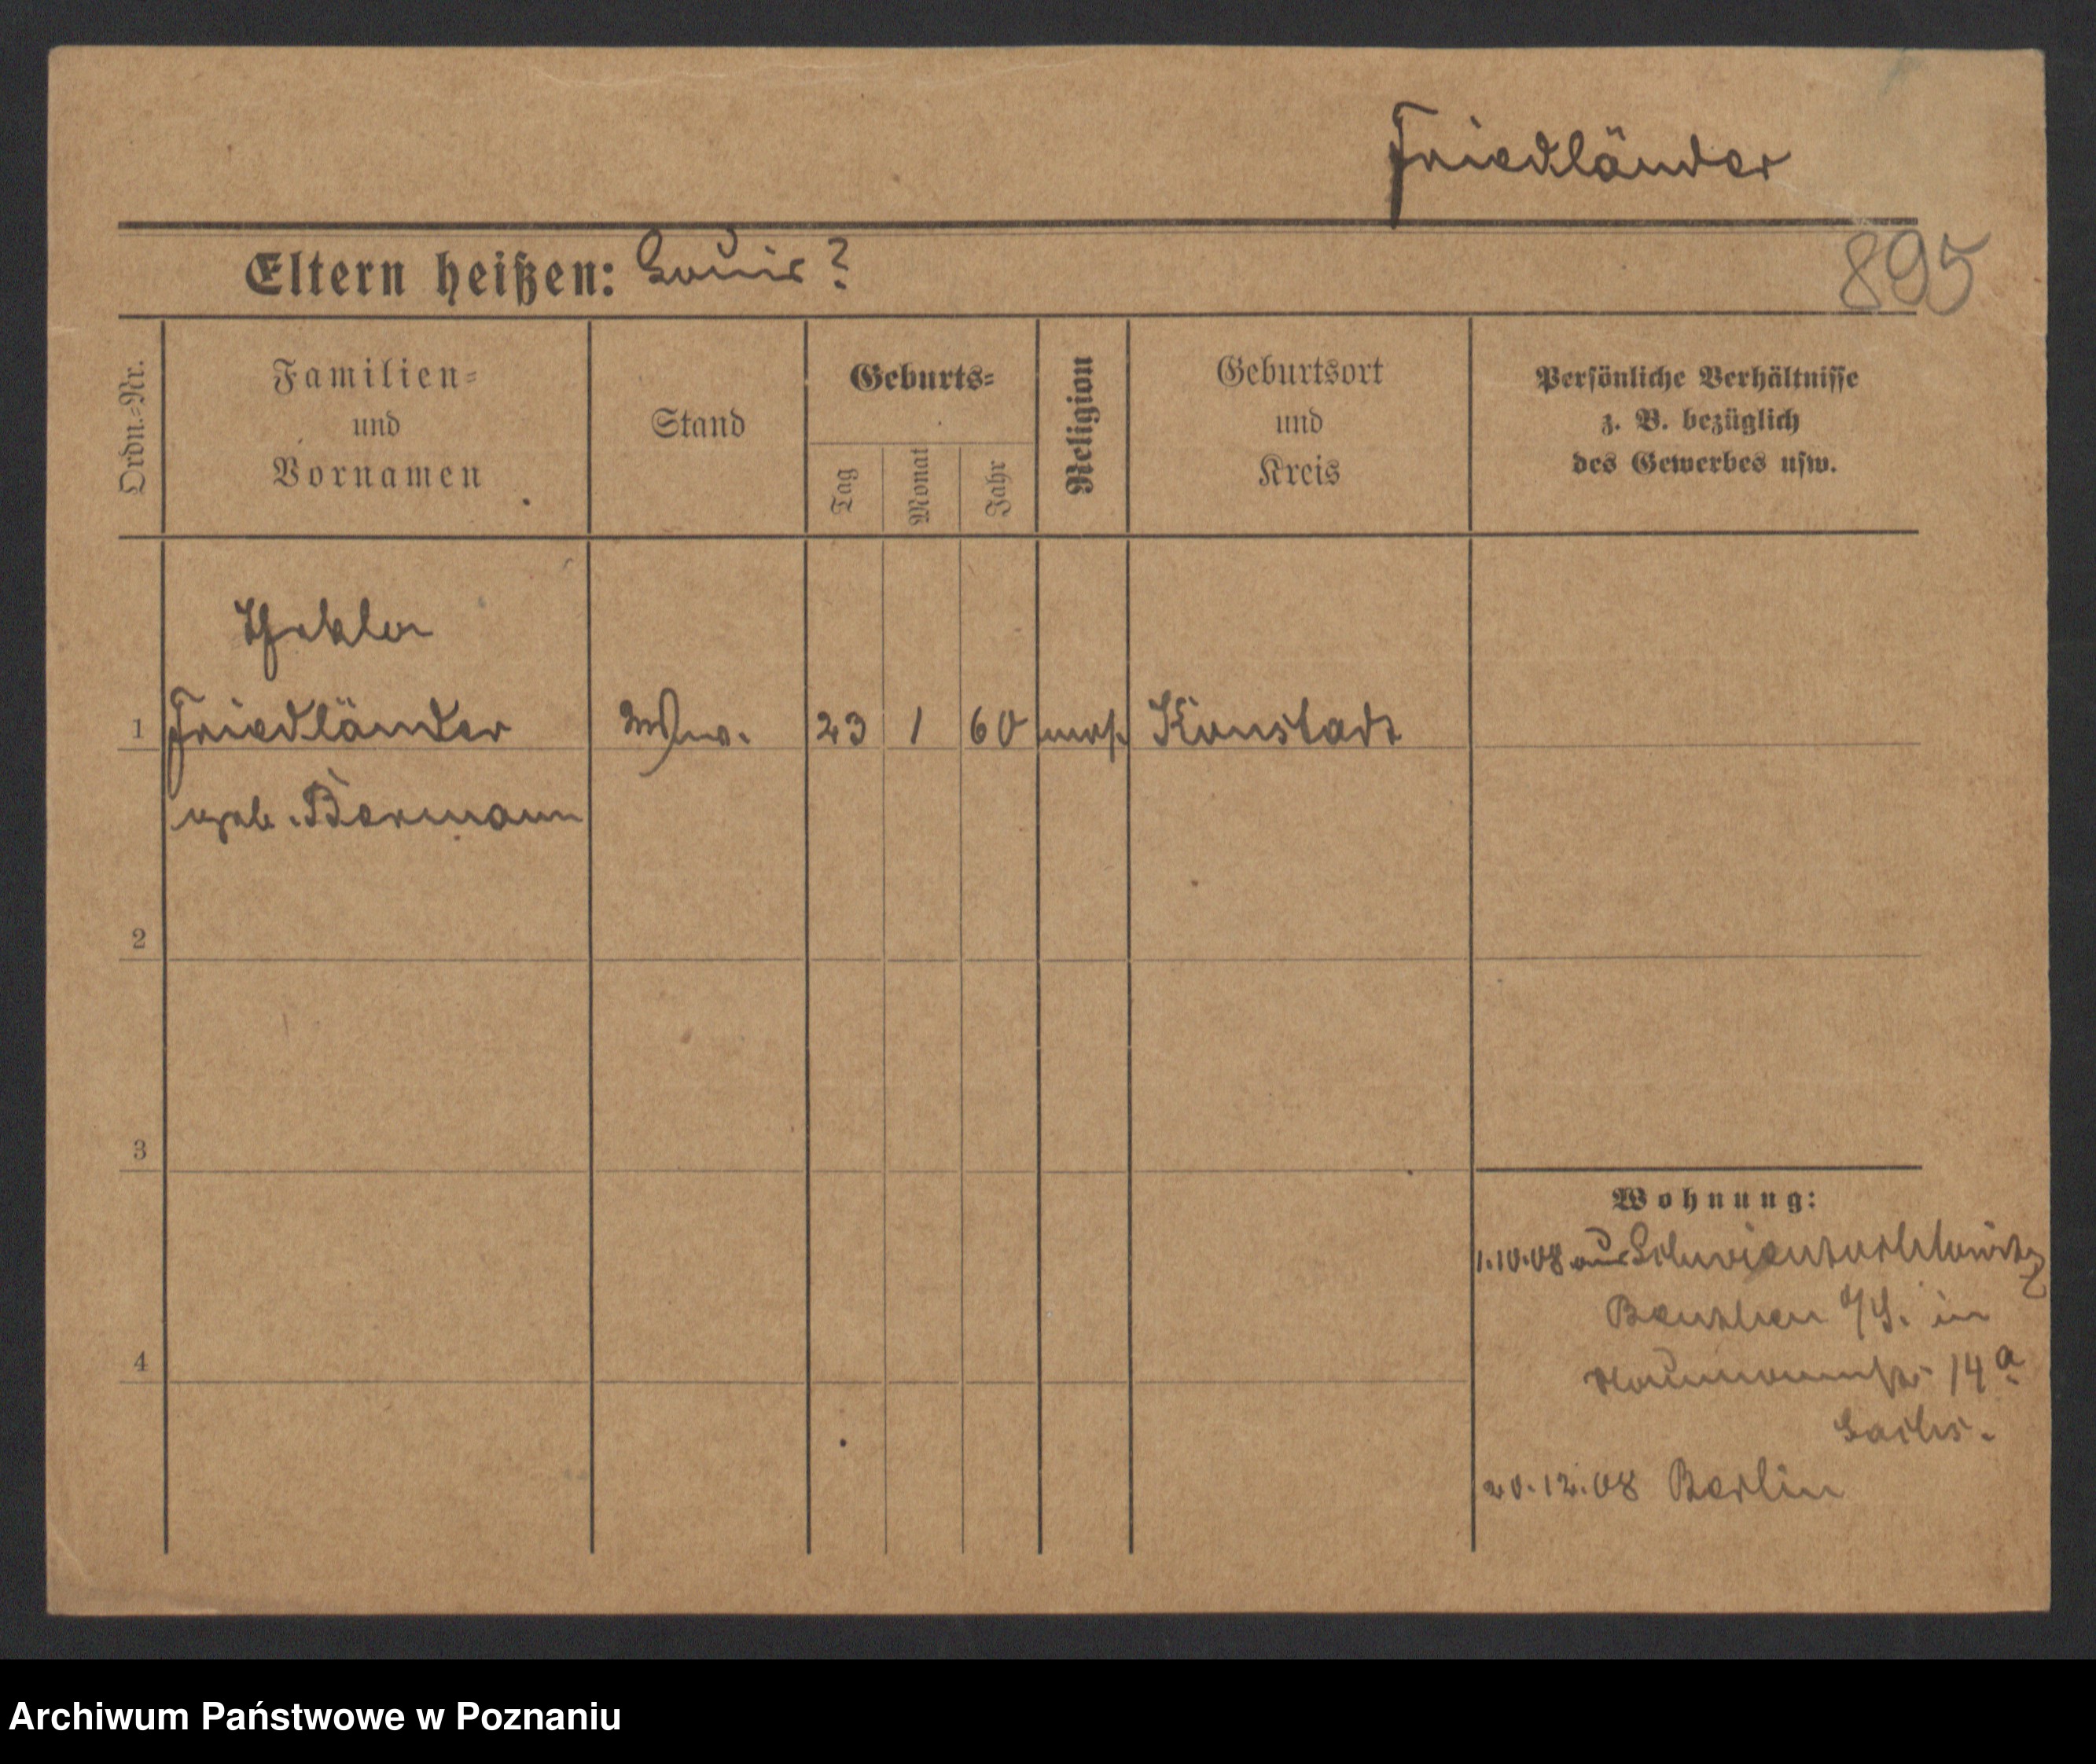 Friedländer
Eltern heißen: Louis?
895
Ordn.=Nr.
Familien=
und
Vornamen
Stand
Geburts=
Tag
Monat
Jahr
Religion
Geburtsort
und
Kreis
Persönliche Verhältnisse
z. B. bezüglich
des Gewerbes usw.
Thekla
1 Friedländer Wwe. 23 1 60 mos. Konstadt
geb. Bermann
2
3
4
Wohnung:
1.10.08 aus Schwientochlowitz
Beuthen O/S. in
Naumannstr 14a
Sachs.
20.12.08 Berlin
Archiwum Państwowe w Poznaniu